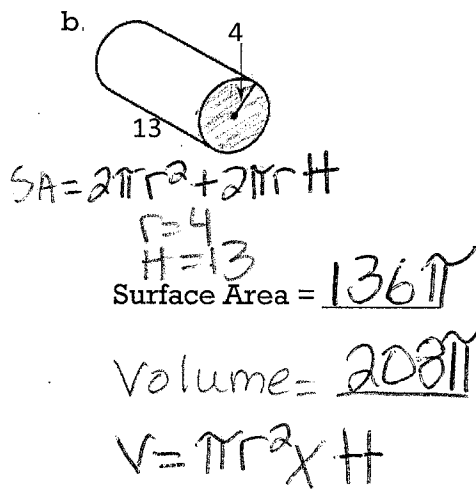 b.
4
13
SA = 2πr² + 2πrH
r = 4
H = 13
Surface Area = 136π
Volume = 208π
V = πr² x H